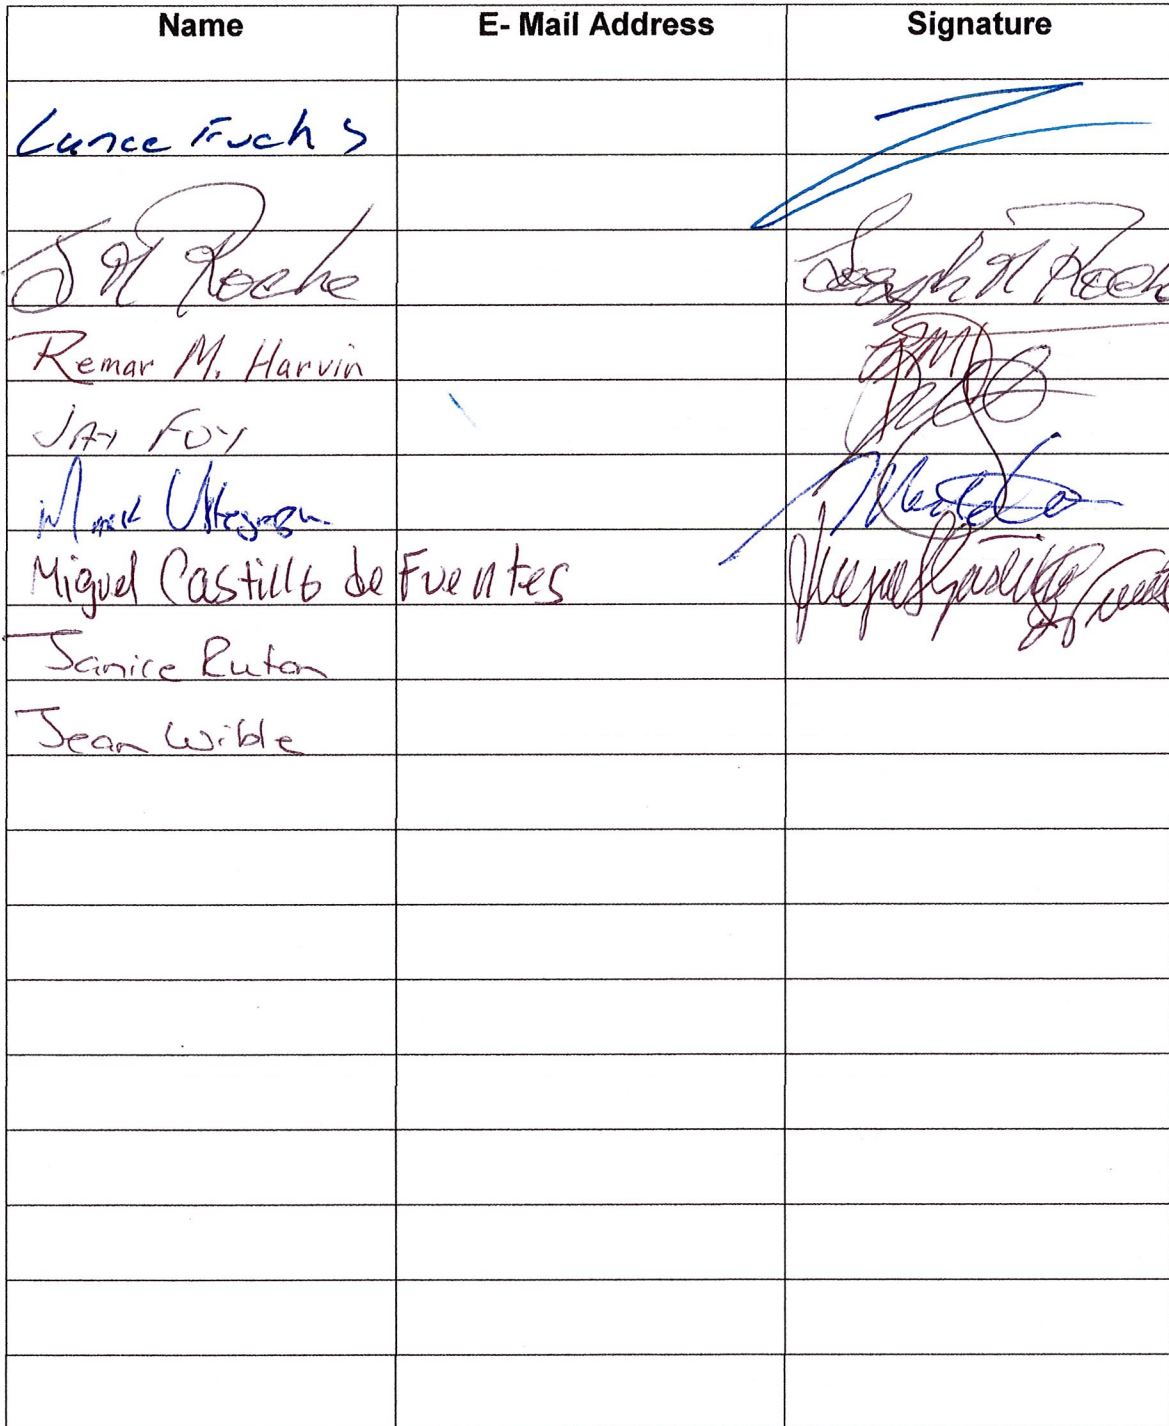 Name E- Mail Address Signature
Lance Fuchs
J M Roche Joseph M Roche
Remar M. Harvin
JAY FOY
Mark
Miguel Castillo de Fuentes
Janice Ruton
Jean Wible